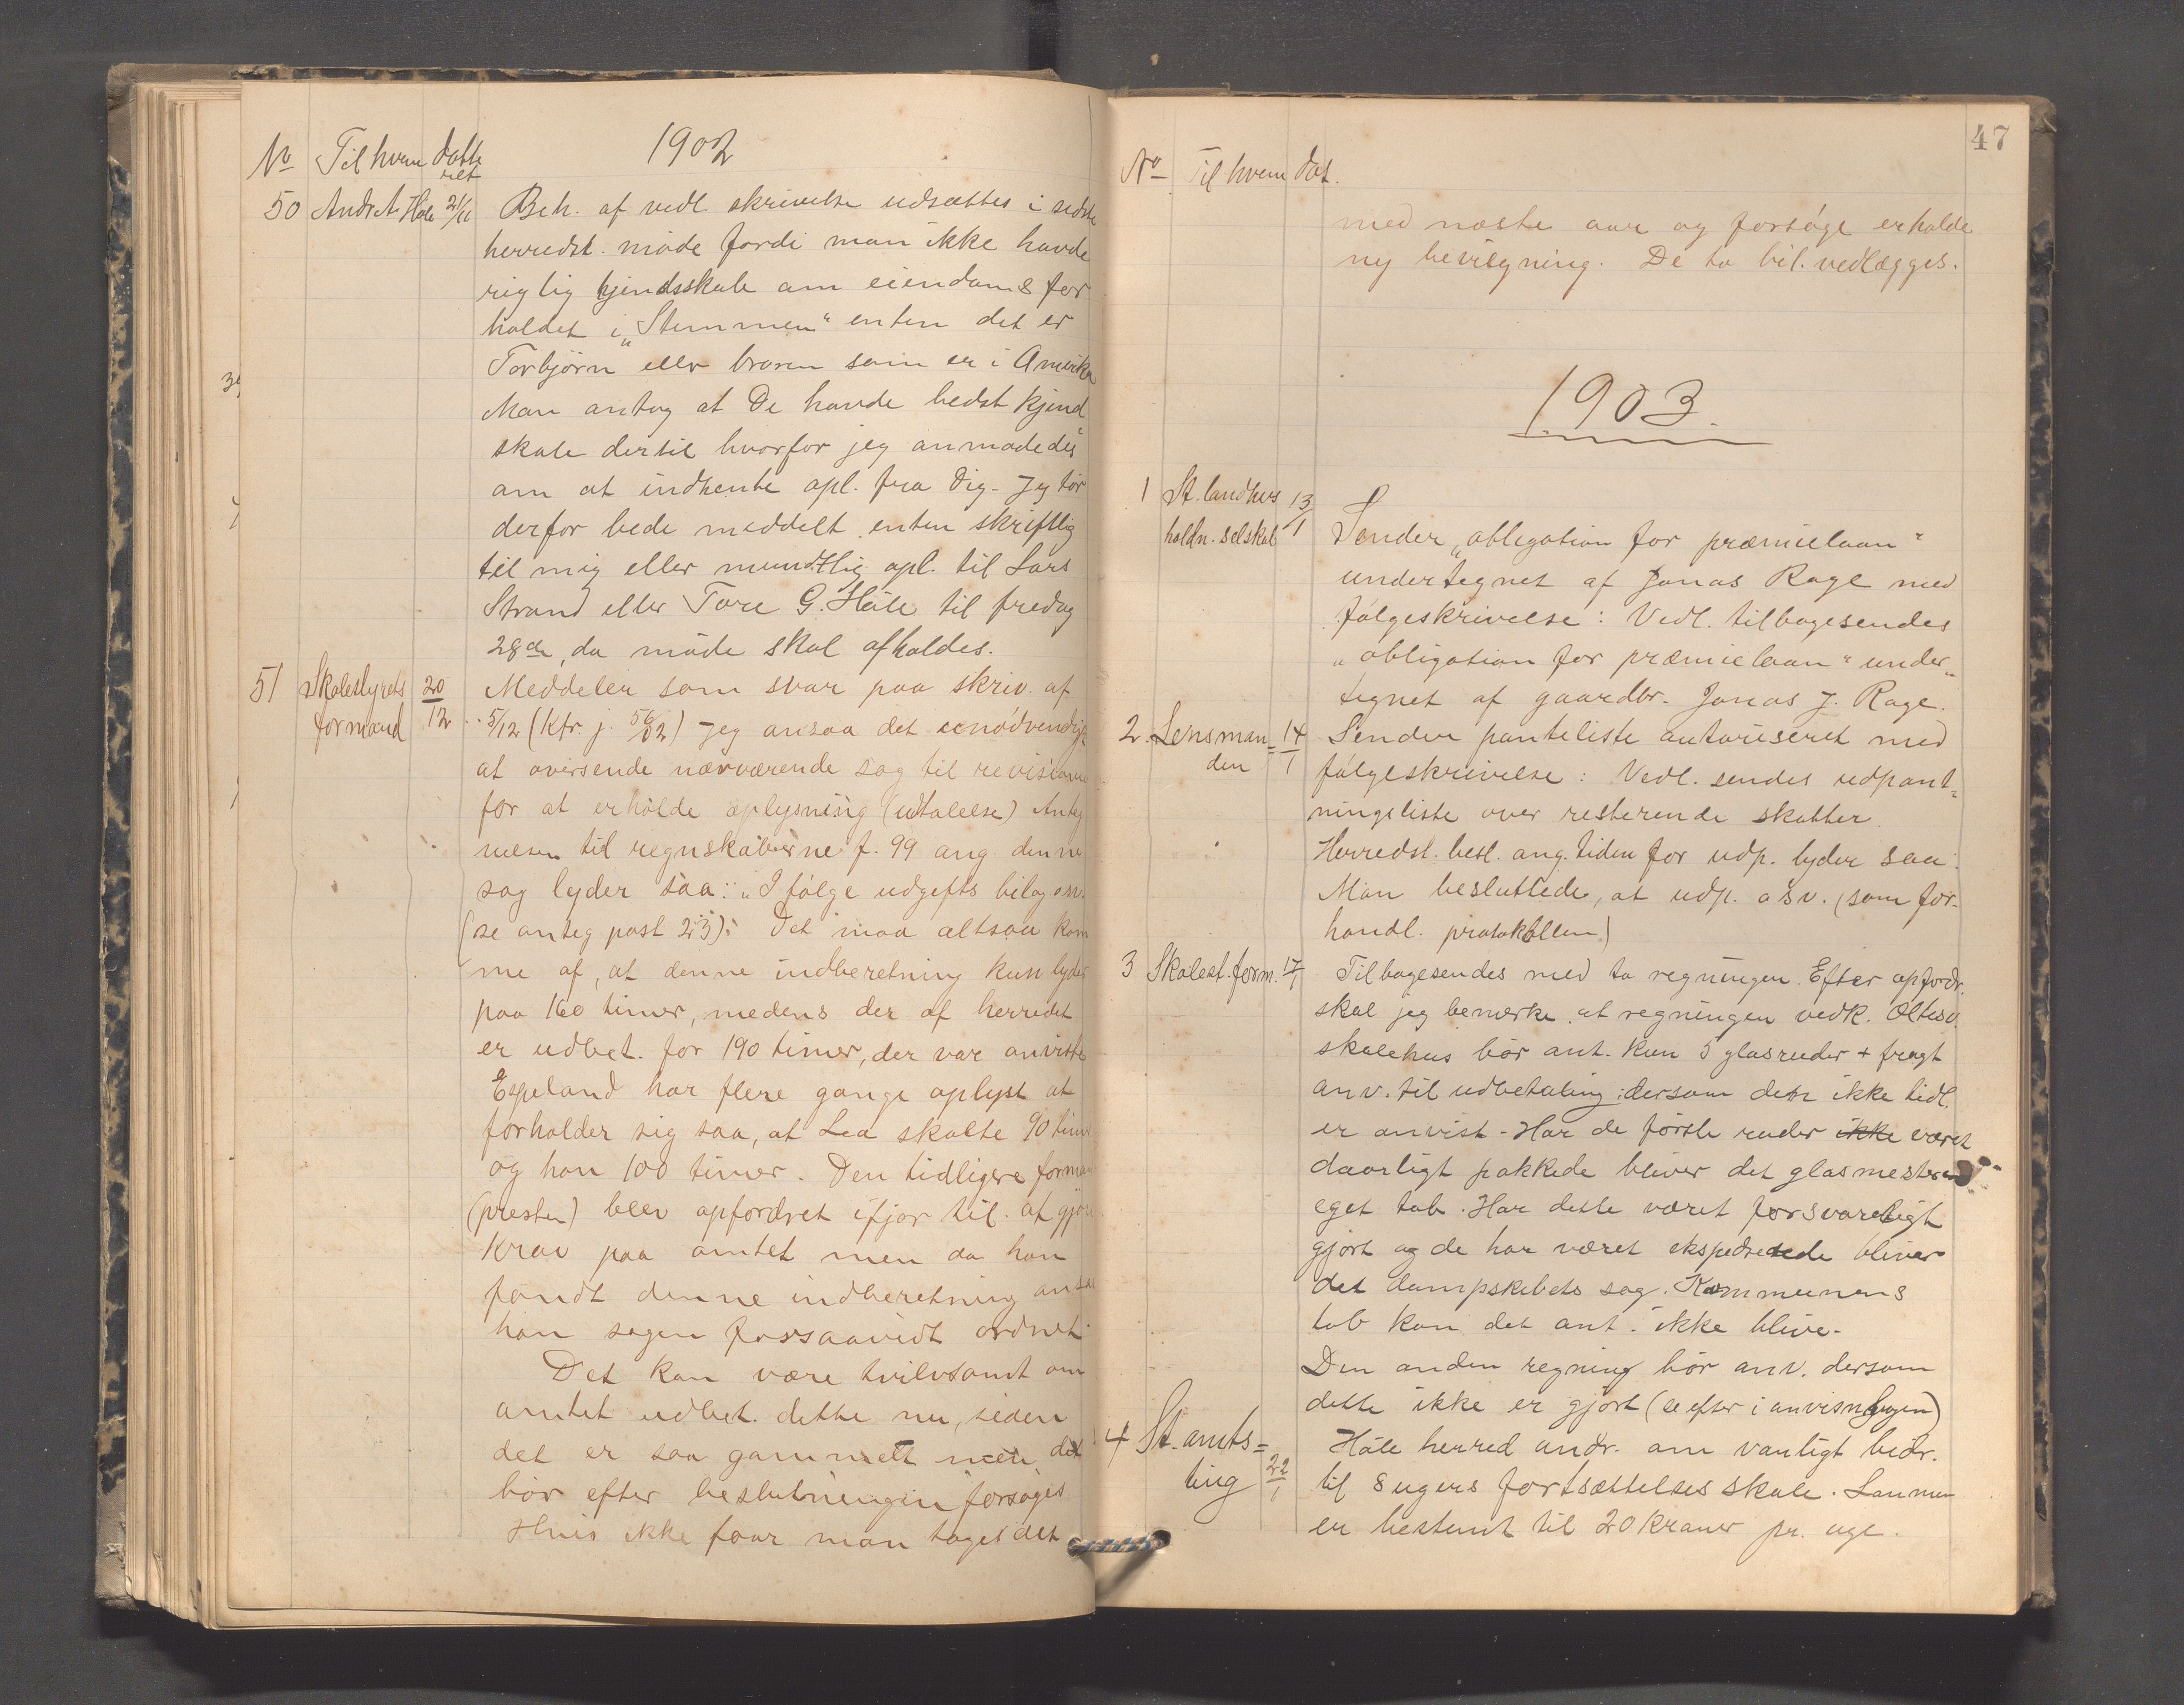 1902
No Til hvem Datte
ret
50 Andr. A. Hole 21/11 Beh. af vedl. skrivelse udsættes i sidste
herredst. møde fordi man ikke havde
rigtig kjendsskab om eiendomsfor
holdet i „Stemmen“ enten det er
Torbjørn eller broren som er i Amerika
Man antog at De havde bedst kjend
skab dertil hvorfor jeg anmodedes
om at indhente opl. fra Dig. Jeg tør
derfor bede meddelt enten skriftlig
til mig eller mundtlig opl. til Lars
Strand eller Tore G. Håle til fredag
28de, da møde skal afholdes.
51 Skolestyrets 20/12 Meddeler som svar paa skriv. af
formand 5/12 (kfr. j. 56/02) Jeg ansaa det unødvendigt
at oversende nærværende sag til revisionen
for at erholde oplysning (udtalelse) Anteg
nelsen til regnskaberne f. 99 ang. denne
sag lyder saa: „Ifølge udgifts bilag osv.
(se anteg. post 23): Det maa altsaa kom
me af, at denne indberetning kun lyder
paa 160 timer, medens der af herredet
er udbet. for 190 timer, der var anviste
Espeland har flere gange oplyst at
forholder sig saa, at Lea skolte 90 timer
og han 100 timer. Den tidligere formand
(presten) blev opfordret ifjor til at gjøre
krav paa amtet men da han
fandt denne indberetning ansaa
han sagen forsaavidt ordnet.
Det kan være tvilvsomt om
amtet udbet. dette nu, siden
det er saa gammelt men det
bør efter beslutningen forsøges
Hvis ikke faar man taget det
47
No Til hvem Dat.
med næste aar og forsøge erholde
ny bevilgning. De to bil. vedlægges.
1903.
1 St. landhus 13/1
holdn. selskab Sender „obligation for præmielaan“
undertegnet af Jonas Rage med
følgeskrivelse: Vedl. tilbagesendes
„obligation for præmielaan“ under„
tegnet af gaardbr. Jonas J. Rage.
2. Lensman= 14/1 Sender panteliste autoriseret med
den følgeskrivelse: Vedl. sendes udpant=
ningsliste over resterende skatter.
Herredst. besl. ang. tiden for udp. lyder saa:
Man besluttede, at udp. osv. (som for-
handl. protokollen)
3 Skolest. form. 17/1 Tilbagesendes med to regninger. Efter opfordr.
skal jeg bemærke at regningen vedk. Oltesv.
skolehus bør ant. kun 5 glasruder + fragt
anv. til udbetaling: dersom den ikke tidl.
er anvist - Har de første ruder ikke været
daarligt pakkede bliver det glasmesteren
eget tab. Har dette været forsvareligt
gjørt og de har været ekspederede bliver
det dampskibets sag. Kommunens
tab kan det ant. ikke blive.
Den anden regning bør anv. dersom
dette ikke er gjørt (se efter i anvisn. bogen)
4 St. amts= Håle herred andr. om vanligt bidr.
ting 22/1 til 8 ugers fortsættelses skole. Lønnen
er bestemt til 20 kroner pr. uge.